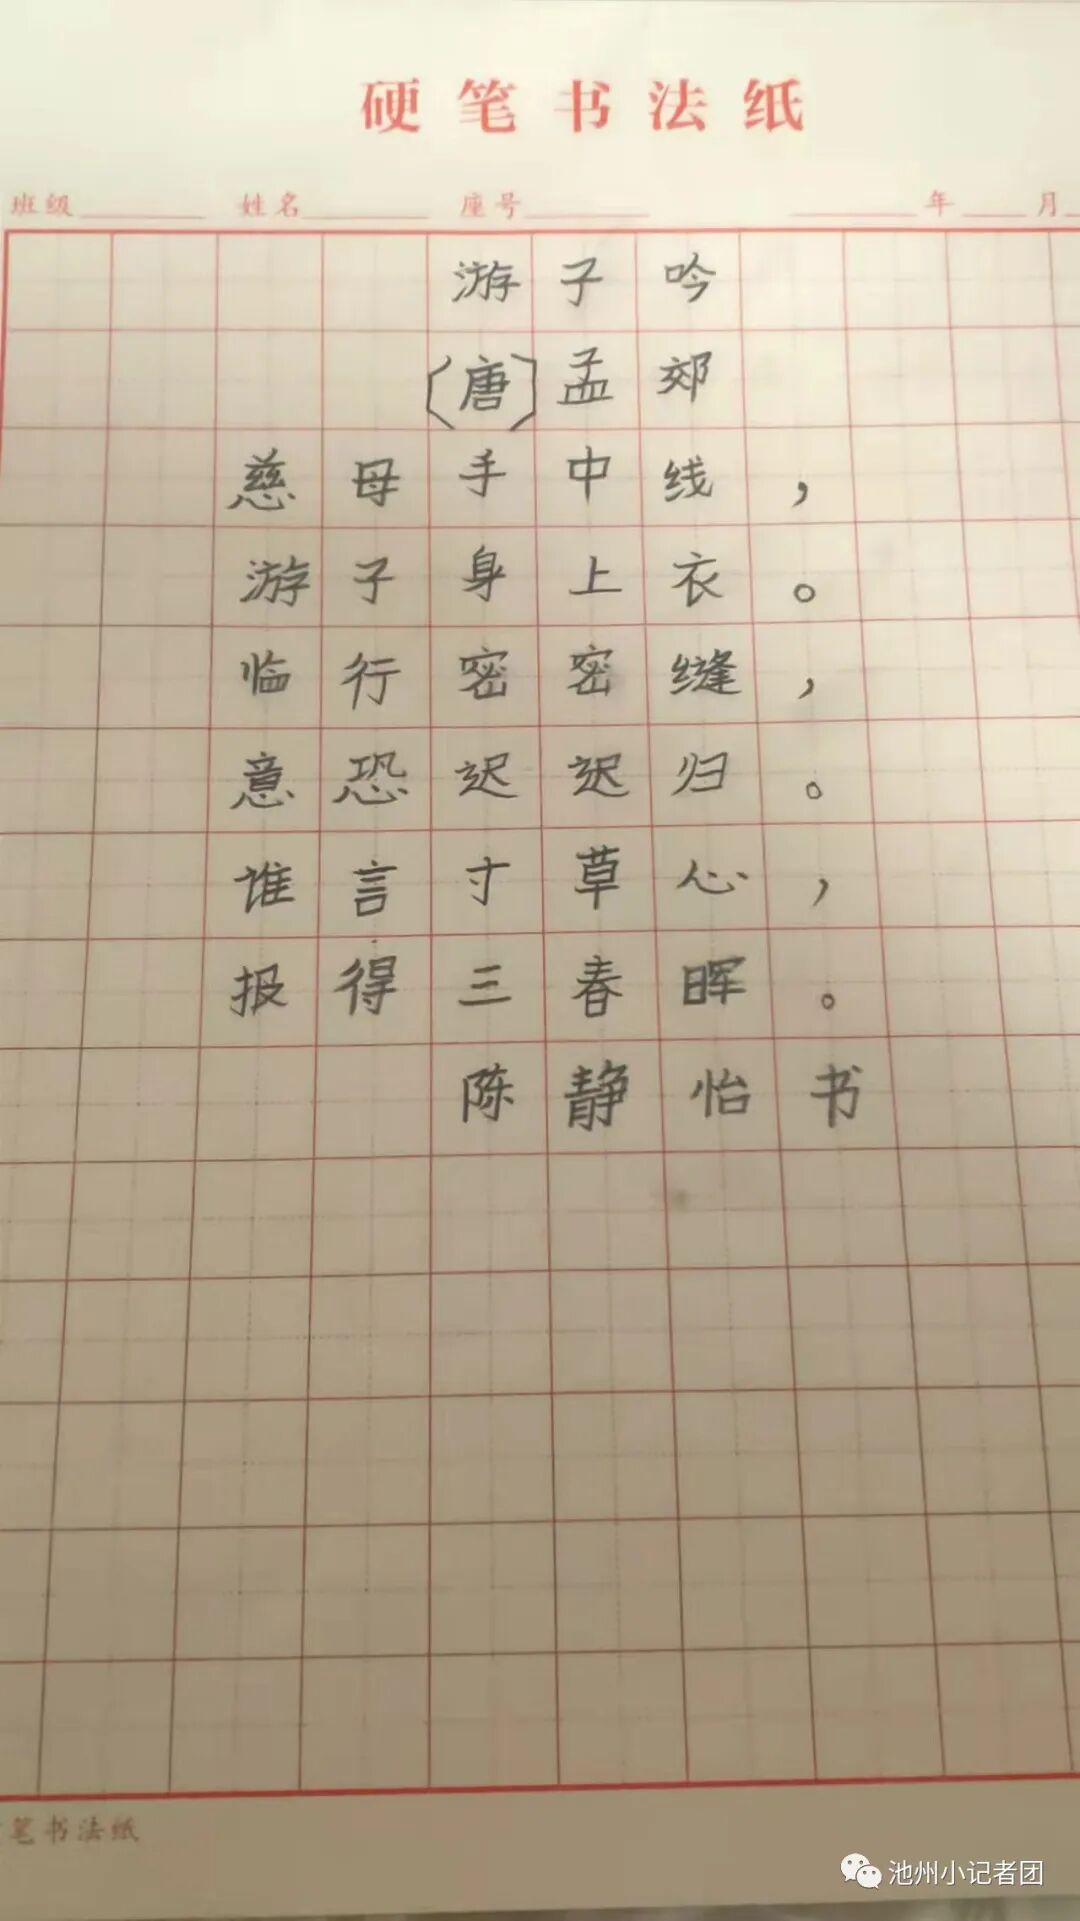 硬笔书法纸
班级 姓名 座号 年 月
游子吟
〔唐〕孟郊
慈母手中线，
游子身上衣。
临行密密缝，
意恐迟迟归。
谁言寸草心，
报得三春晖。
陈静怡书
笔书法纸
池州小记者团